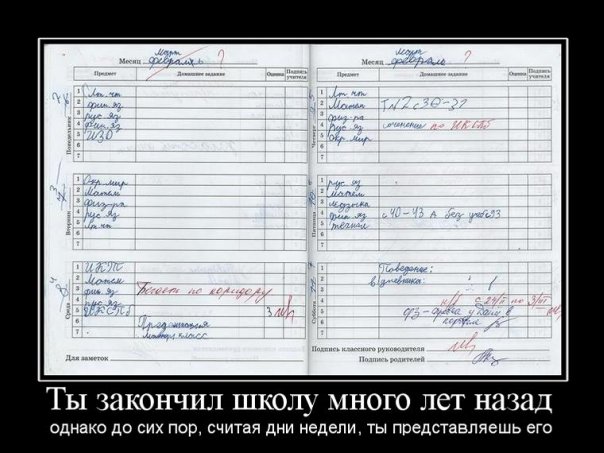 март
Месяц февраль ?
Предмет Домашнее задание Оценка Подпись учителя
Понедельник
1 Лит. чт
2 фин. яз
3 рус яз
4 фин. яз
5 ИЗО
6
7
Вторник
1 Окр. мир
2 Матем
3 физ-ра
4 рус яз
5 Лит. чт
6
7
Среда
1 ИКТ
2 Матем
3 фин. яз Бегает по коридору
4 рус яз
5 ИКСПб 3
6
7
Для заметок
март
Месяц февраль ?
Предмет Домашнее задание Оценка Подпись учителя
Четверг
1 Лит чт
2 Матем Т№2 с 30-31
3 физ-ра
4 рус яз сочинение по ИКСПб
5 Окр мир
6
7
Пятница
1 рус яз
2 матем
3 музыка
4 фин яз с 40-43 А без
5
6
7
Суббота
1 Поведение:
2 в дневнике:
3
4 по
5
6
7
Подпись классного руководителя
Подпись родителей
Ты закончил школу много лет назад
однако до сих пор, считая дни недели, ты представляешь его